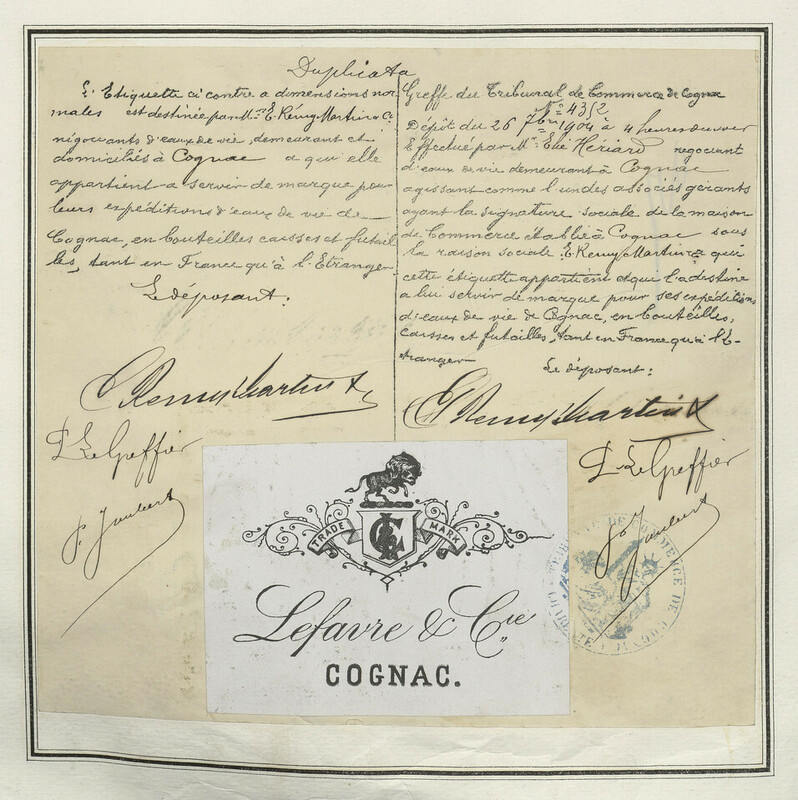 Duplicata
L'Etiquette ci contre a dimensions nor
males est destinée par M.rs E. Rémy Martin & Co
négociants d'eaux de vie, demeurant et
domiciliés à Cognac a qui elle
appartient a servir de marque pour
leurs expéditions d'eaux de vie de
Cognac, en bouteilles caisses et futail
les, tant en France qu'à l'Etranger
Le déposant:
E. Remy Martin &
P. Le Greffier
P. Joubert
Greffe du Tribunal de Commerce de Cognac
N° 4352
Dépôt du 26 7bre 1904 à 4 heures du soir
Effectué par M. Elie Hériard négociant
d'eaux de vie demeurant à Cognac
agissant comme l'un des associés gérants
ayant la signature sociale de la maison
de Commerce établie à Cognac sous
la raison sociale E. Remy Martin & Co à qui
cette étiquette appartient et qui l'a destine
a lui servir de marque pour ses expéditions
d'eaux de vie de Cognac, en bouteilles,
caisses et futailles, tant en France qu'à l'E-
tranger
Le déposant:
E. Remy Martin &
P. Le Greffier
P. Joubert
TRADE MARK
Lefavre & Cie
COGNAC.
TRIBUNAL DE COMMERCE DE COGNAC